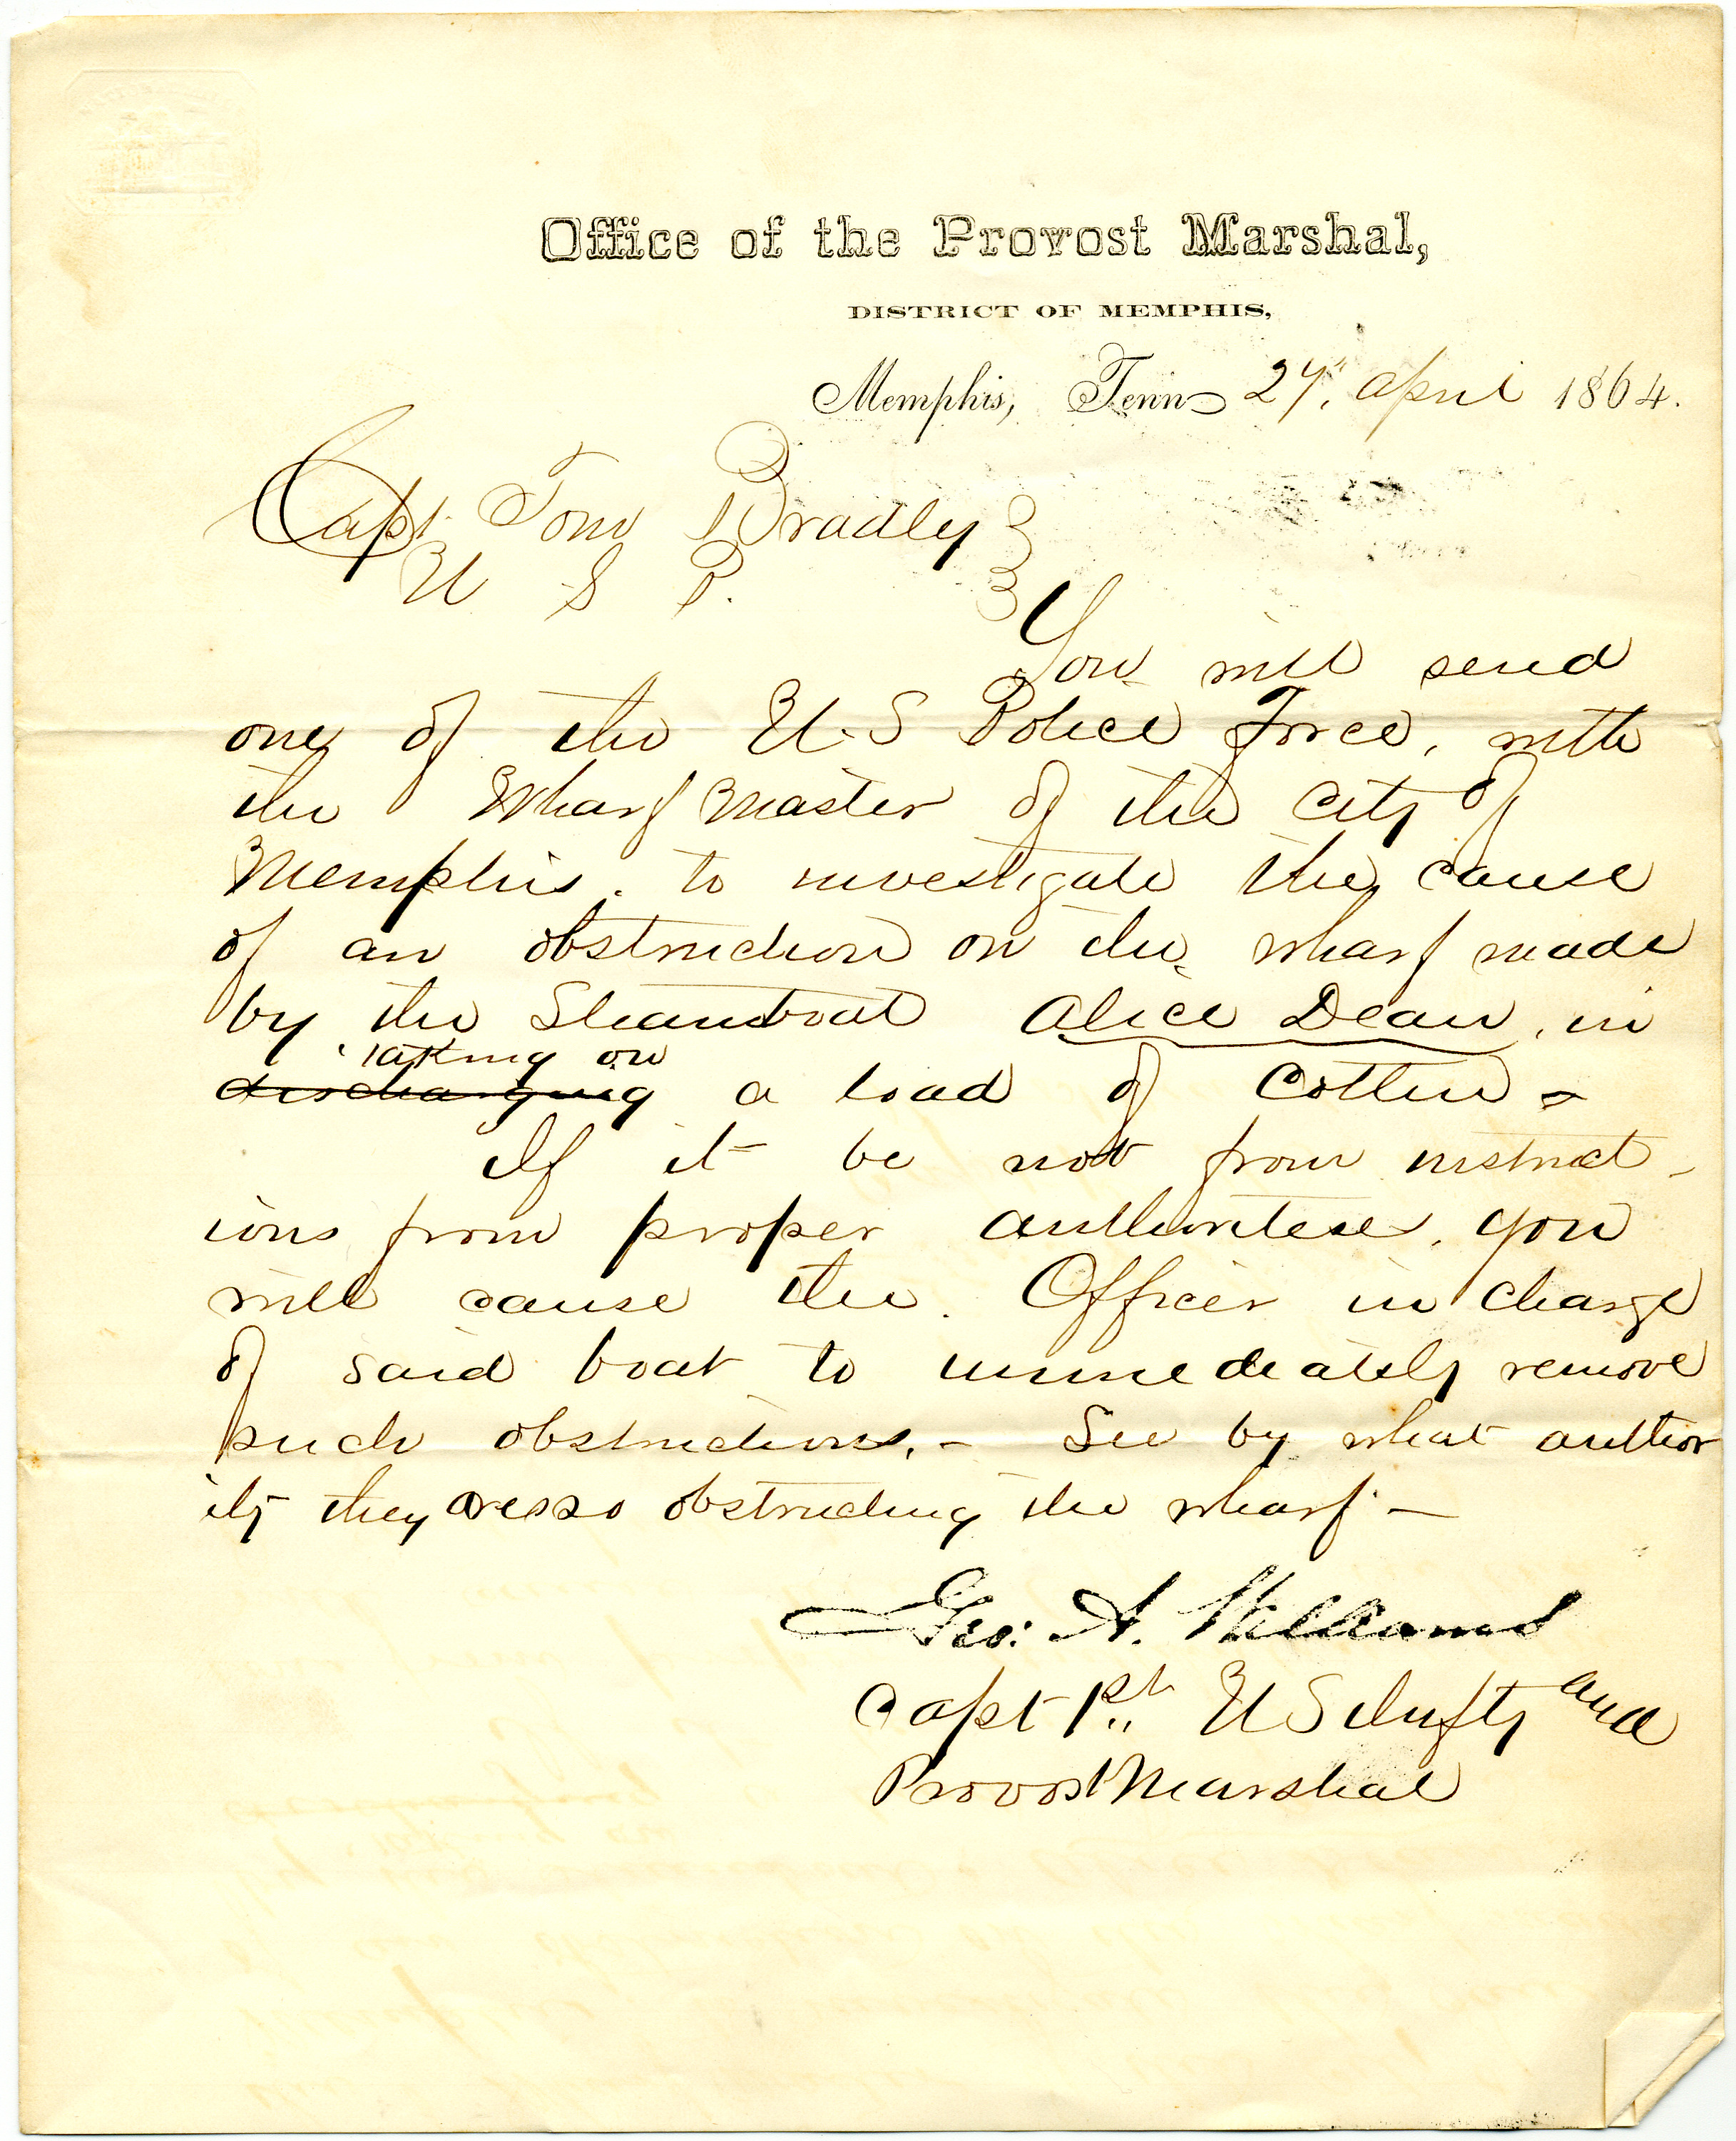 Office of the Provost Marshal,
DISTRICT OF MEMPHIS,
Memphis, Tenn 27" April 1864.
Capt Tom Bradley
U S P.
You will send
one of the U.S Police Force, with
the Wharf Master of the City of
Memphis. to investigate the cause
of an obstruction on the wharf made
by the Steamboat Alice Dean, in
taking on
discharging a load of Cotten -
If it be not from instruct-
ions from proper authoritese, you
will cause the Officer in charge
of said boat to immediately remove
such obstructions. - See by what author
ity they are so obstructing the wharf -
Geo: A. Williams
Capt 1st U S Infty and
Provost Marshal